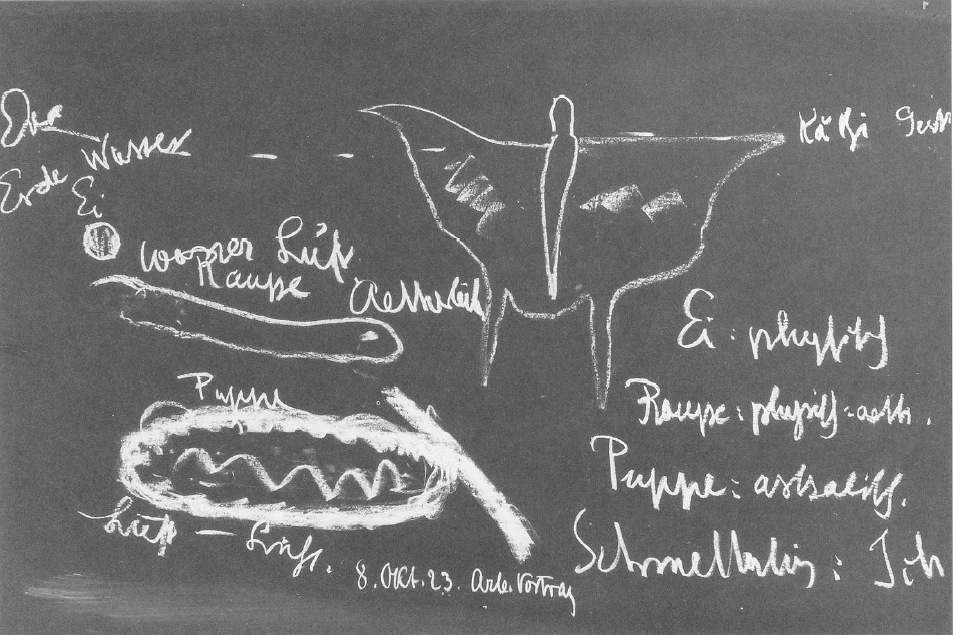 Erde Wasser
Ei
Wasser Luft
Raupe
Puppe
Luft – Licht.
8. Okt. 23. Arb. Vortrag
Ei: physisch
Raupe: physisch-aeth.
Puppe: astralisch.
Schmetterling: Ich